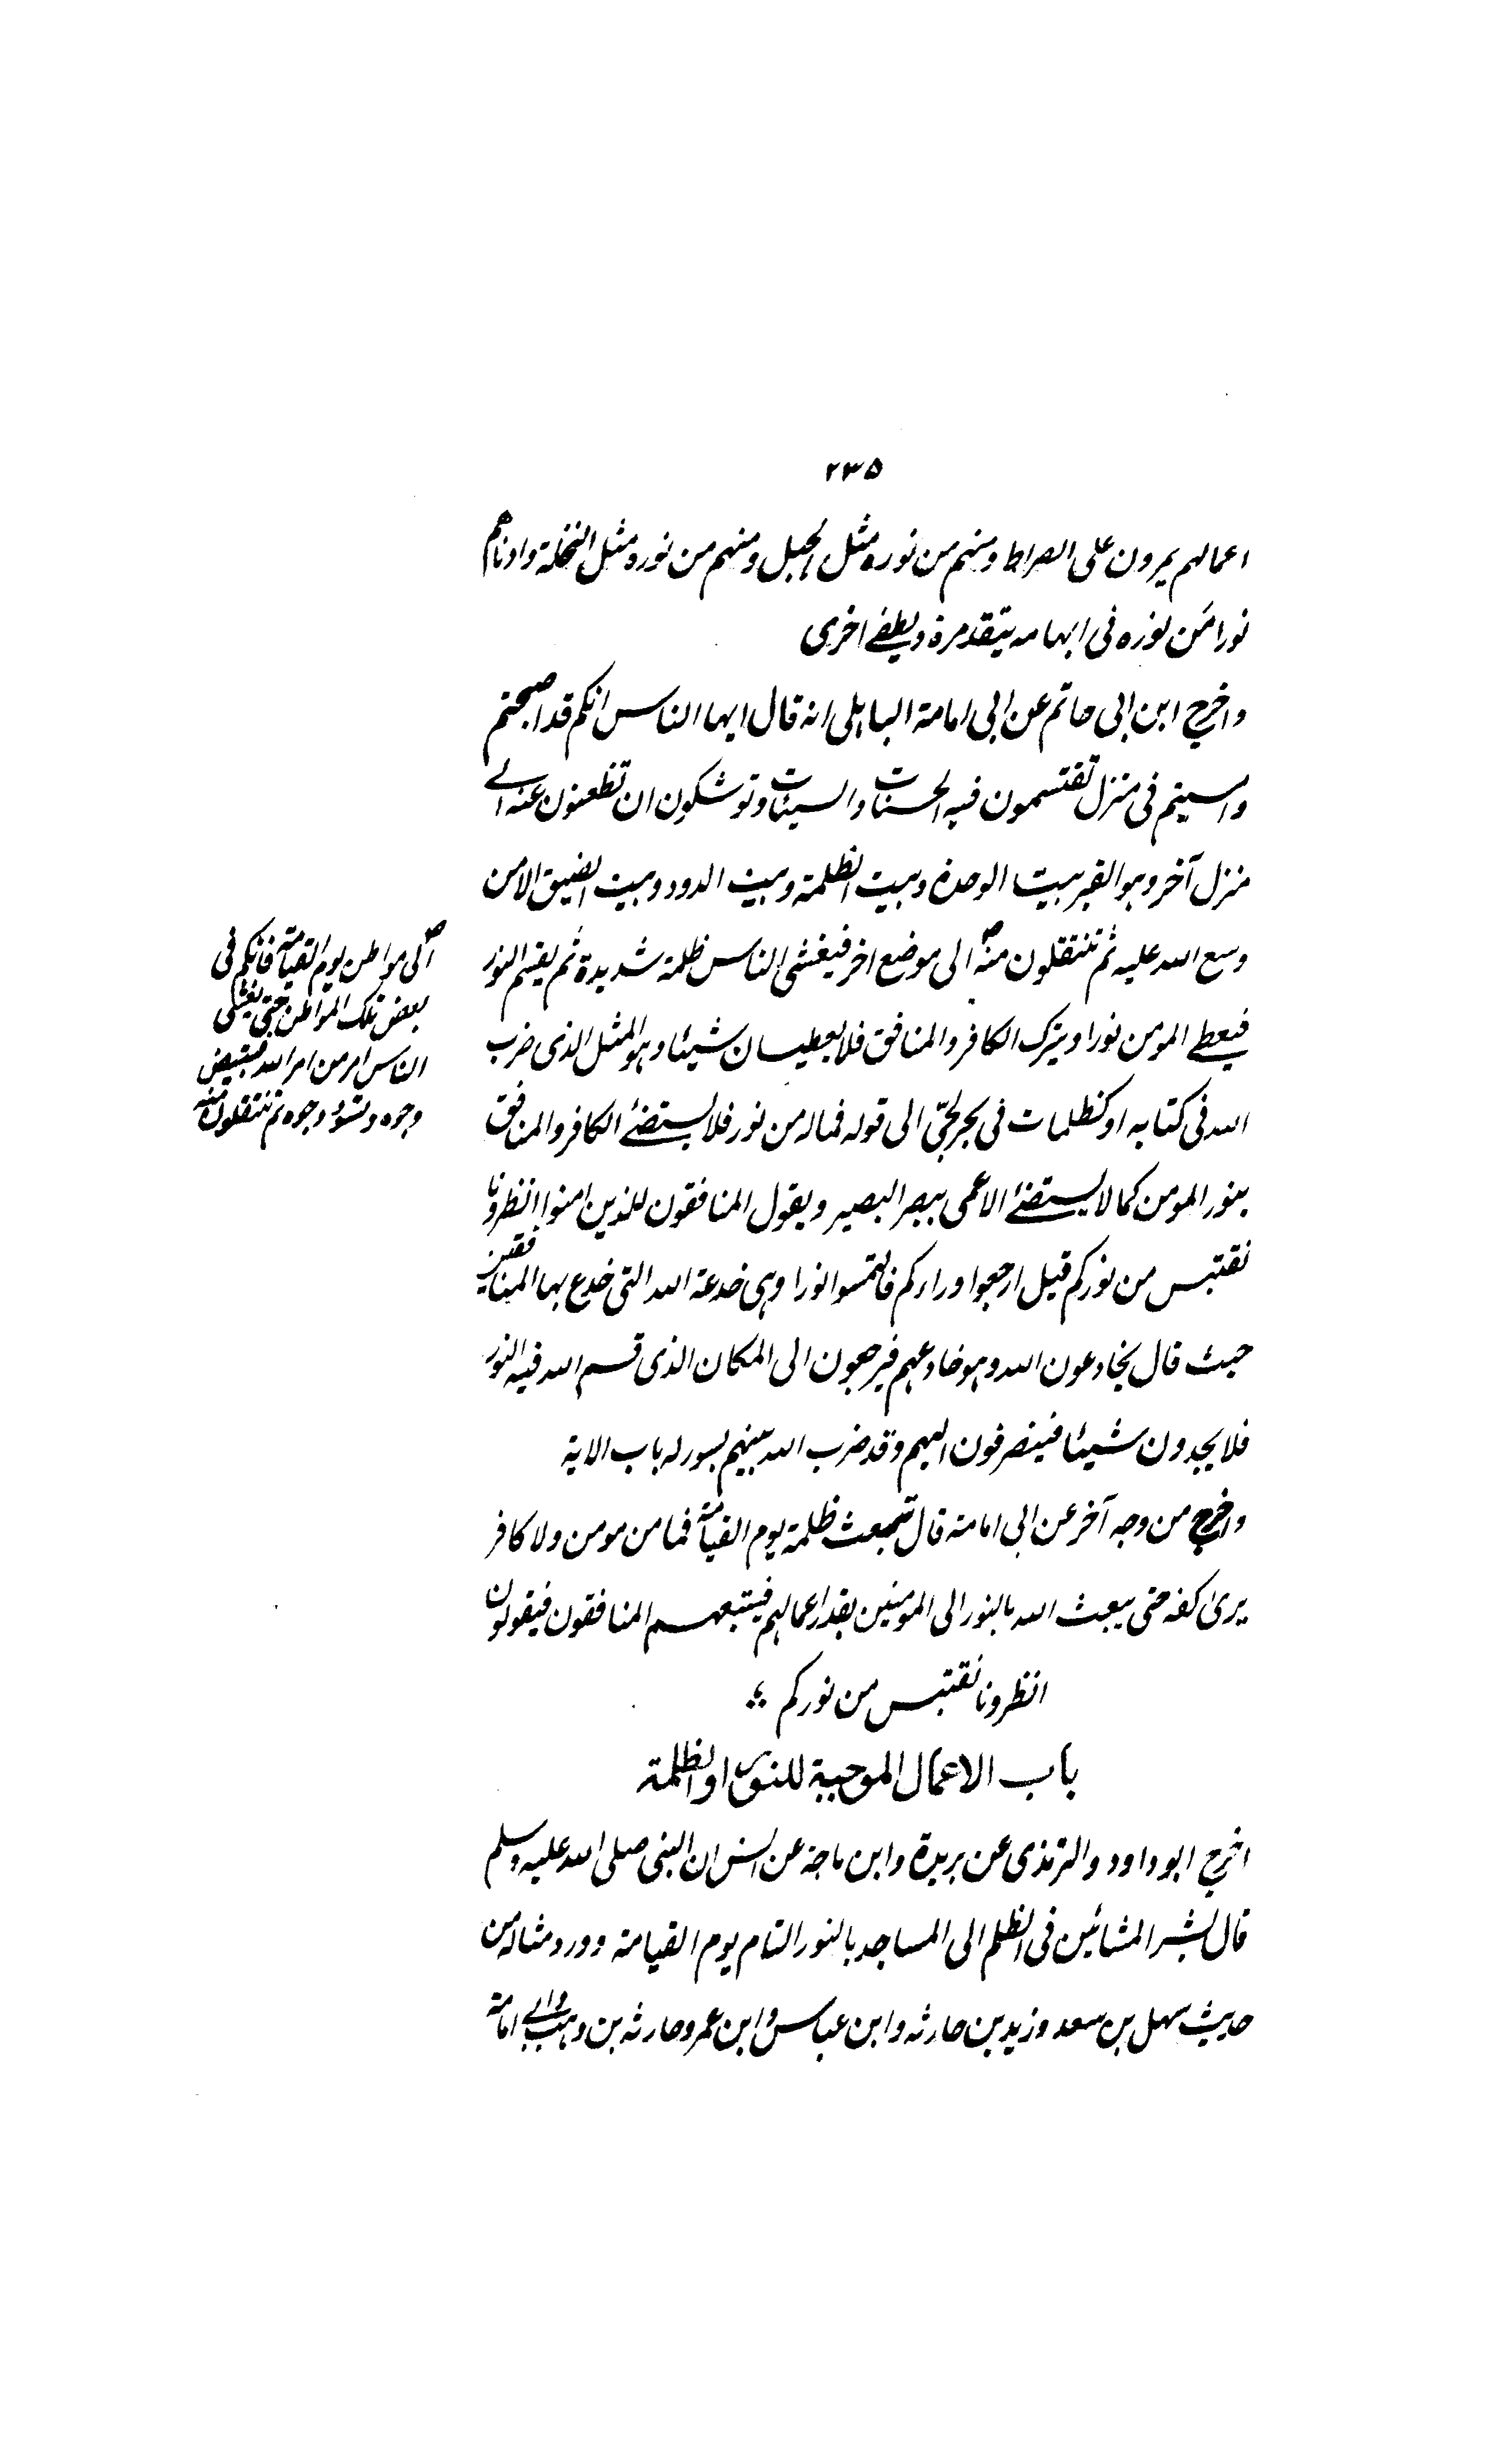 ٢٣٥
اعمالهم يمرون على الصراط ومنهم من نوره مثل الجبل ومنهم من نوره مثل النخلة وادناهم
نورا من نوره فى ابهامه يتقد مرة ويطفے اخرى
واخرج ابن ابى حاتم عن ابى امامة الباهلى انه قال ايها الناس انكم قد اصبحتم
وامسيتم فى منزل تقتسمون فيه الحسنات والسيئات وتوشكون ان تظعنون عنه الے
منزل آخر وهو القبر بيت الوحدة وبيت الظلمة وبيت الدود وبيت الضيق الا من
وسع الله عليه ثم تنتقلون منه ص الى موضع اخر فيغشى الناس ظلمة شديدة ثم يقسم النور
فيعطے المومن نورا ويترك الكافر والمنافق فلا يعطيان شيئا وهو المثل الذى ضرب
الله فى كتابه او كظلمات فى بحر لجّى الى قوله فما له من نور فلا يستضئ الكافر والمنافق
بنور المومن كما لا يستضئ الاعمى ببصر البصير ويقول المنافقون للذين امنوا انظرونا
نقتبس من نوركم قيل ارجعوا وراءكم فالتمسوا نورا وهى خدعة الله التى خدع بها المنافقين
حيث قال يخادعون الله وهو خادعهم فيرجعون الى المكان الذى قسم الله فيه النور
فلا يجدون شيئا فينصرفون اليهم وقد ضرب الله بينهم بسور له باب الاية
واخرج من وجه آخر عن ابى امامة قال تبعث ظلمة يوم القيامة فما من مومن ولا كافر
يرى كفه حتى يبعث الله بالنور الى المومنين بقدر اعمالهم فيتبعهم المنافقون فيقولون
انظرونا نقتبس من نوركم
باب الاعمال الموجبة للنور او الظلمة
اخرج ابو داود والترمذى عن بريدة وابن ماجة عن انس ان النبى صلى الله عليه وسلم
قال بشر المشائين فى الظلم الى المساجد بالنور التام يوم القيامة وورد مثاله من
حديث سهل بن سعد وزيد بن حارثه وابن عباس وابن عمر وحارثه بن وهب وابے امامة
ص الى مواطن يوم القيامة فانكم فى
بعض تلك المواطن حتى يغشى
الناس امر من امر الله فتبيض
وجوه وتسود وجوه ثم تنتقلون منه